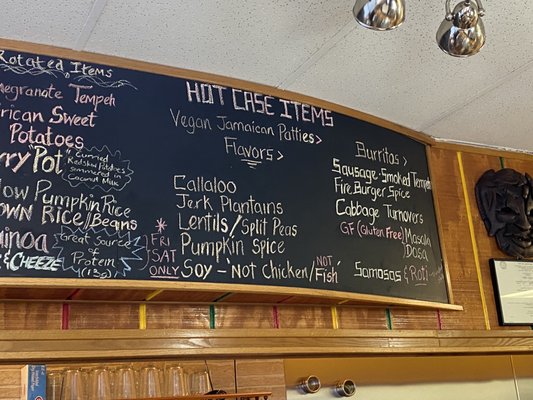 Rotated Items
Pomegranate Tempeh
African Sweet
Potatoes
Curry "Pot"
Curried
Redskin Potatoes
simmered in
Coconut Milk
Yellow Pumpkin Rice
Brown Rice/Beans
Quinoa
& CHEEZE
Great Source
of
Protein
FRI
SAT
ONLY
HOT CASE ITEMS
Vegan Jamaican Patties >
Flavors >
Callaloo
Jerk Plantains
Lentils/Split Peas
Pumpkin Spice
Soy - 'Not Chicken/Fish'
NOT
Burritos >
Sausage-Smoked Tempeh
Fire Burger Spice
Cabbage Turnovers
GF (Gluten Free) Masala
Dosa
Samosas & Roti